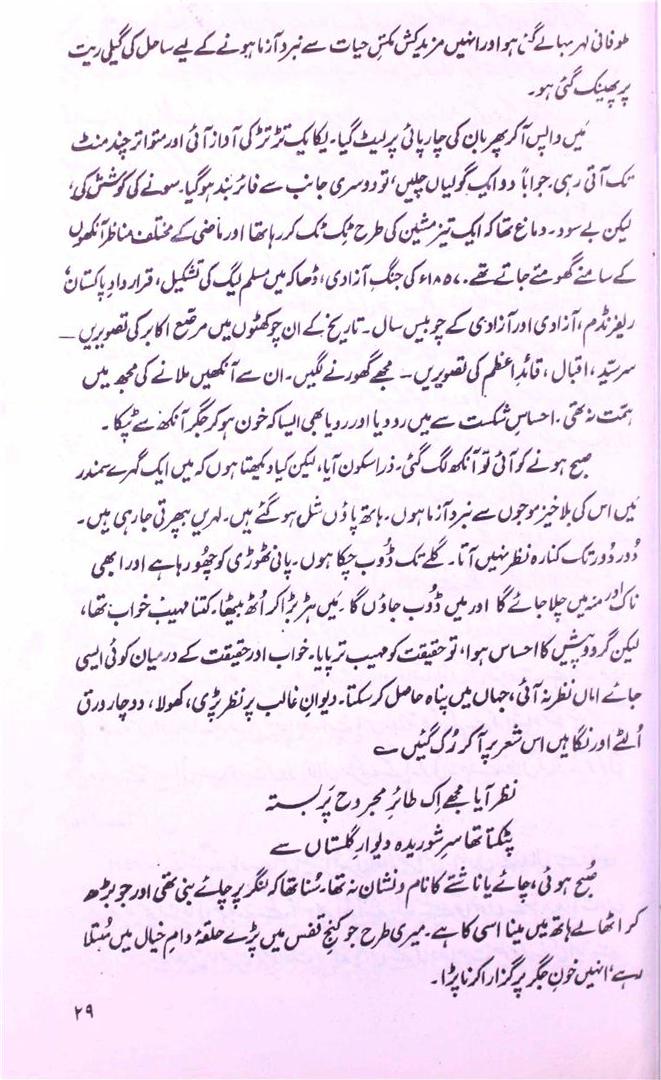 طوفانی لہر بہالے گئی ہو اور انہیں مزید کش مکشِ حیات سے نبرد آزما ہونے کے لیے ساحل کی گیلی ریت
پر پھینک گئی ہو۔
مَیں واپس آکر پھر بان کی چارپائی پر لیٹ گیا۔ یکایک تڑتڑ کی آواز آئی اور متواتر چند منٹ
تک آتی رہی۔ جواباً دو ایک گولیاں چلیں، تو دوسری جانب سے فائر بند ہوگیا۔ سونے کی کوشش کی،
لیکن بے سود۔ دماغ تھا کہ ایک تیز مشین کی طرح ٹِک ٹِک کر رہا تھا اور ماضی کے مختلف مناظر آنکھوں
کے سامنے گھومتے جاتے تھے۔ ۱۸۵۷ء کی جنگِ آزادی، ڈھاکہ میں مسلم لیگ کی تشکیل، قراردادِ پاکستان،
ریفرنڈم، آزادی اور آزادی کے چوبیس سال۔ تاریخ کے ان چوکھٹوں میں مرصّع اکابر کی تصویریں —
سرسیّد، اقبال، قائدِ اعظم کی تصویریں — مجھے گھورنے لگیں۔ ان سے آنکھیں ملانے کی مجھ میں
ہمّت نہ تھی۔ احساسِ شکست سے میں رو دیا اور رویا بھی ایسا کہ خون ہو کر جگر آنکھ سے ٹپکا۔
صبح ہونے کو آئی تو آنکھ لگ گئی۔ ذرا سکون آیا، لیکن کیا دیکھتا ہوں کہ میں ایک گہرے سمندر
مَیں اس کی بلاخیز موجوں سے نبرد آزما ہوں۔ ہاتھ پاؤں شل ہو گئے ہیں۔ لہریں بپھرتی جا رہی ہیں۔
دُور دُور تک کنارہ نظر نہیں آتا۔ گلے تک ڈُوب چکا ہوں۔ پانی ٹھوڑی کو چھُو رہا ہے اور ابھی
ناک اور منہ میں چلا جائے گا اور میں ڈوب جاؤں گا۔ مَیں ہڑبڑا کر اُٹھ بیٹھا۔ کتنا مہیب خواب تھا،
لیکن گردوپیش کا احساس ہوا، تو حقیقت کو مہیب تر پایا۔ خواب اور حقیقت کے درمیان کوئی ایسی
جائے اماں نظر نہ آئی، جہاں میں پناہ حاصل کر سکتا۔ دیوانِ غالب پر نظر پڑی، کھولا، دو چار ورق
اُلٹے اور نگاہیں اس شعر پر آکر رُک گئیں ؎
نظر آیا مجھے اِک طائرِ مجروح پَر بستہ
پٹکتا تھا سرِ شوریدہ دیوارِ گلستاں سے
صُبح ہوئی، چائے یا ناشتے کا نام و نشان نہ تھا۔ سُنا تھا کہ لنگر پر چائے بنی تھی اور جو بڑھ
کر اٹھا لے ہاتھ میں مینا اسی کا ہے۔ میری طرح جو کنجِ قفس میں پڑے حلقۂ دامِ خیال میں مُبتلا
رہے، انہیں خونِ جگر پر گزارا کرنا پڑا۔
۲۹